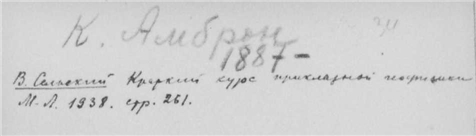 К. Амброн
1887-
В. Сельский Краткий курс прикладной геофизики
М.Л. 1938. стр. 261.